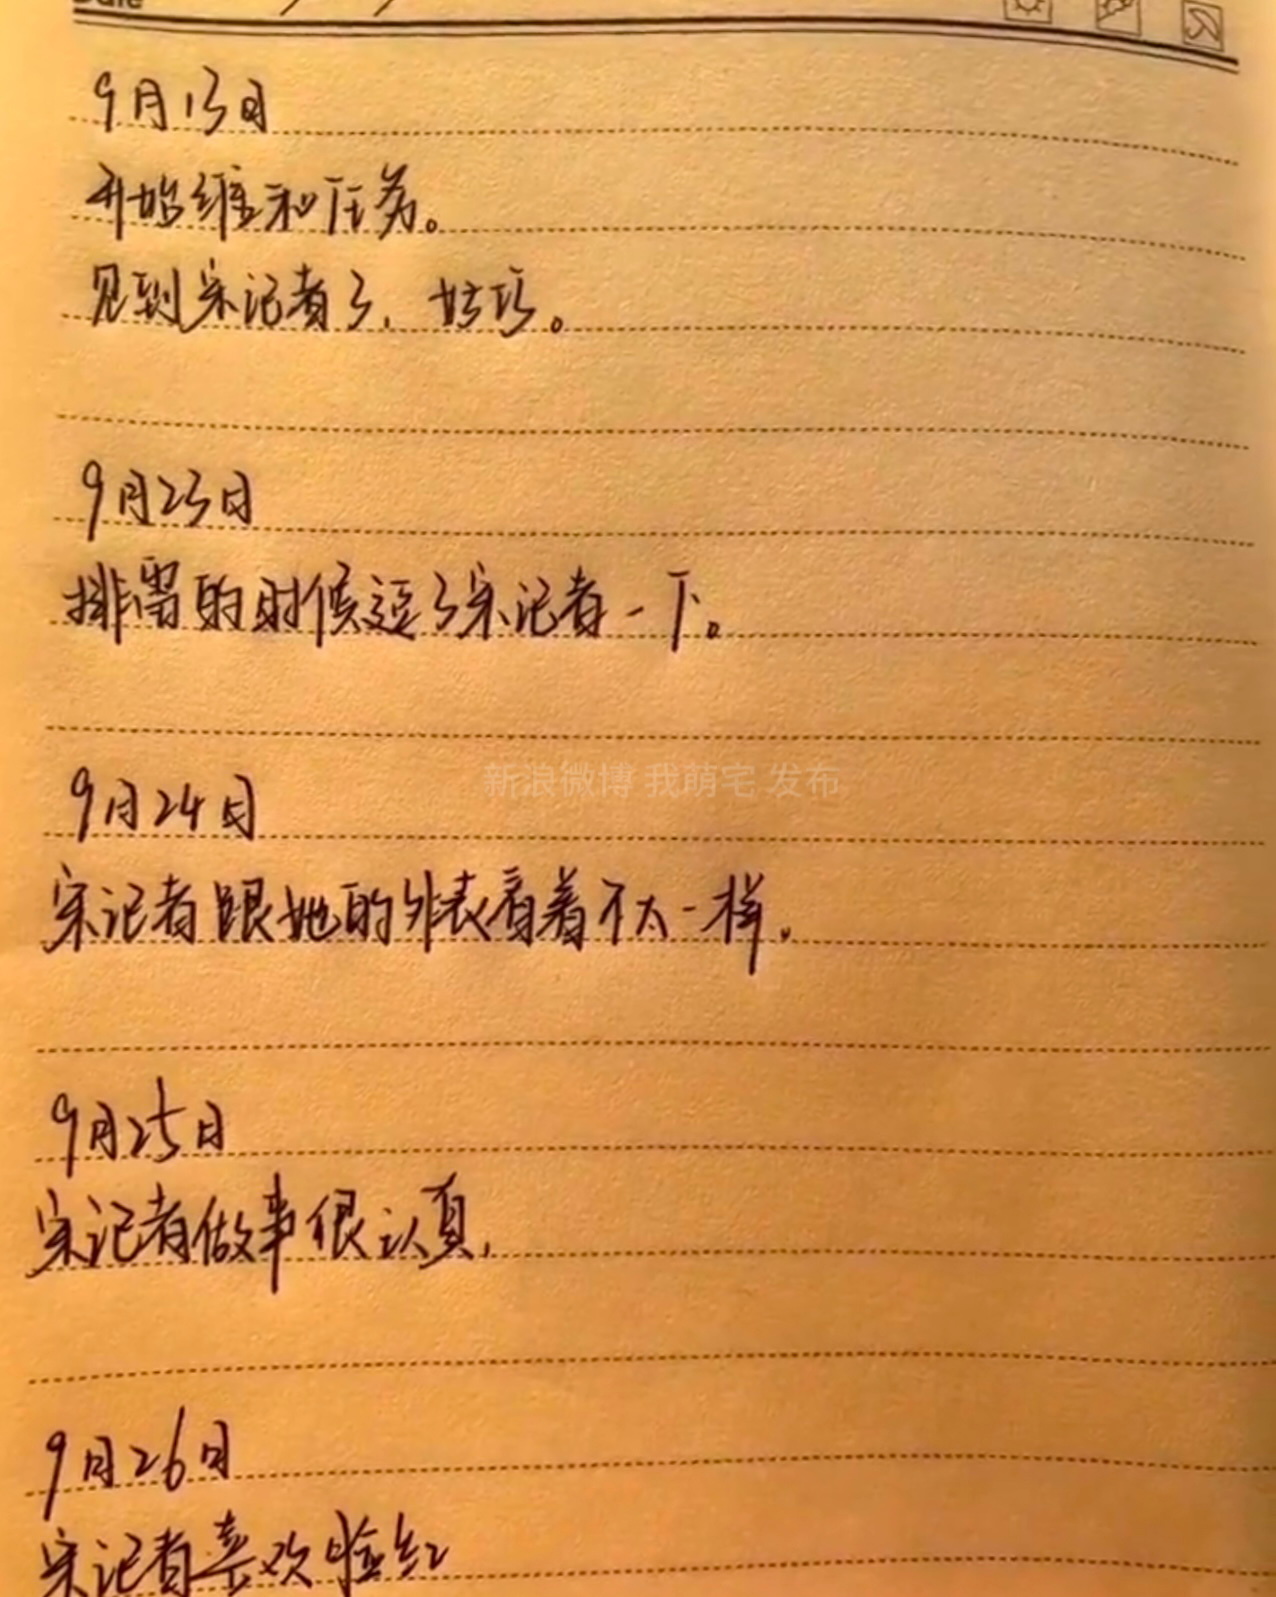 Date
9月13日
开始维和任务。
见到宋记者了，好巧。
9月23日
排雷的时候逗了宋记者一下。
新浪微博 我萌宅 发布
9月24日
宋记者跟她的外表看着不太一样。
9月25日
宋记者做事很认真，
9月26日
宋记者喜欢脸红